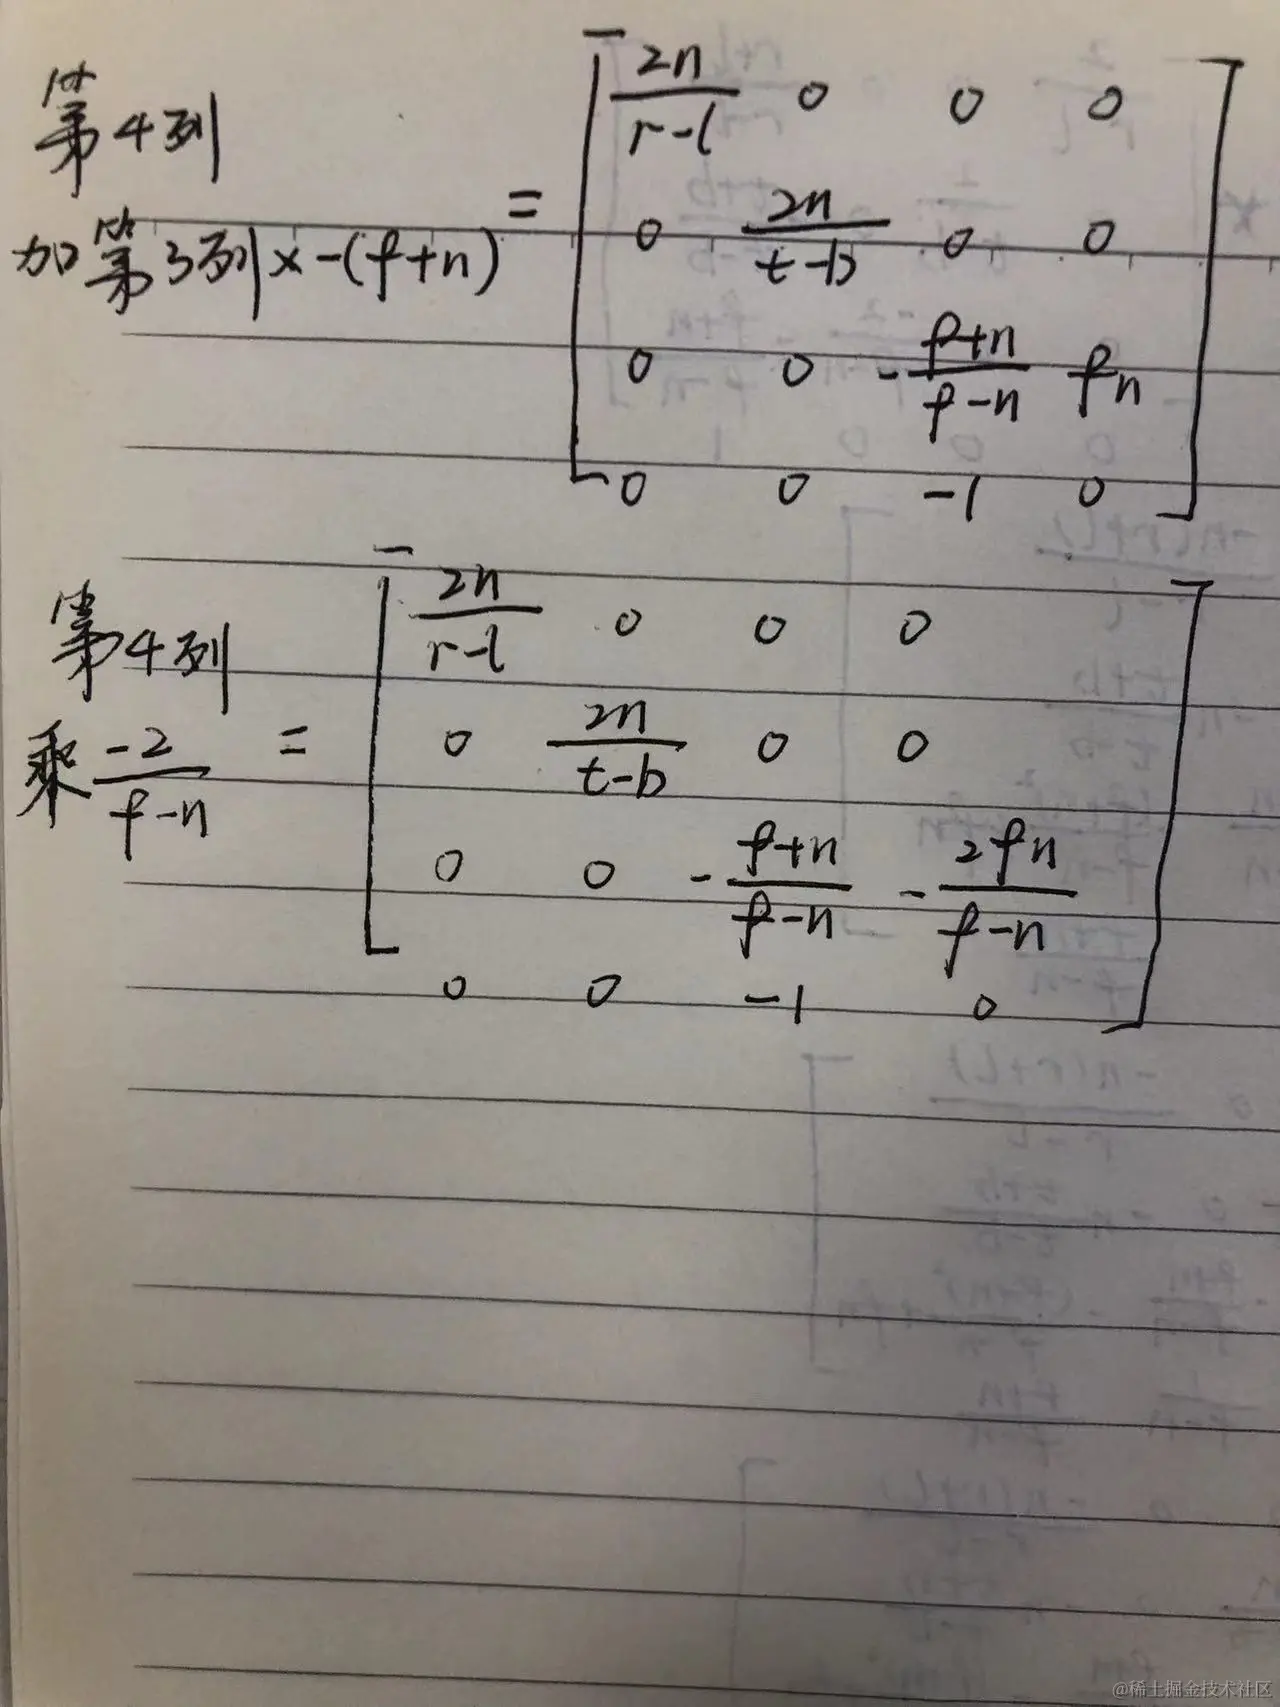 第4列
加第3列×-(f+n) =
[ 2n/(r-l) 0 0 0
0 2n/(t-b) 0 0
0 0 -(f+n)/(f-n) fn
0 0 -1 0 ]
第4列
乘 -2/(f-n) =
[ 2n/(r-l) 0 0 0
0 2n/(t-b) 0 0
0 0 -(f+n)/(f-n) -2fn/(f-n)
0 0 -1 0 ]
@稀土掘金技术社区